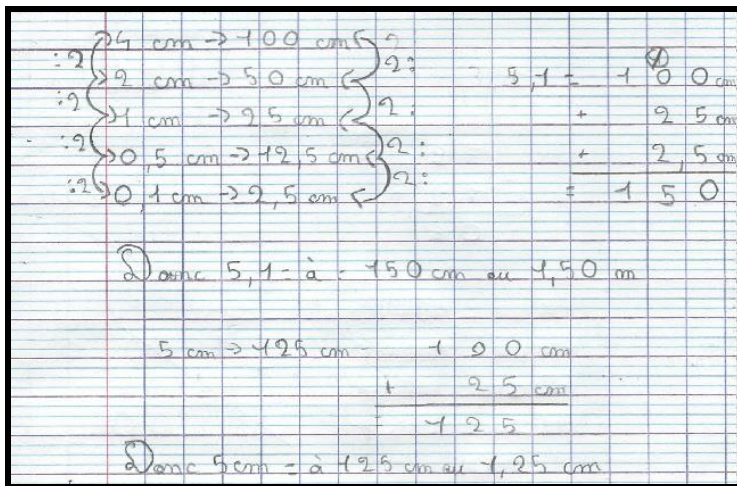 :2 4 cm → 100 cm 2:
:2 2 cm → 50 cm 2:
:2 1 cm → 25 cm 2:
:2 0,5 cm → 12,5 cm 2:
0,1 cm → 2,5 cm
5,1 = 100 cm
+ 25 cm
+ 2,5 cm
= 150
Donc 5,1 = à = 150 cm ou 1,50 m
5 cm → 125 cm - 100 cm
+ 25 cm
= 125
Donc 5cm = à 125 cm ou 1,25 cm